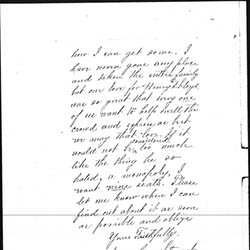 how I can get some. I
have never gone any place
and taken the entire family
but our love for Henry & Lloyd
are so great that every one
of us want to help swell the
crowd and system as best
we may that love. If it
considered
would not be too much
like the thing he so
hated, a monopoly, I
want nine seats. Please
let me know where I can
find out about it as soon
as possible and oblige
Yours Faithfully,